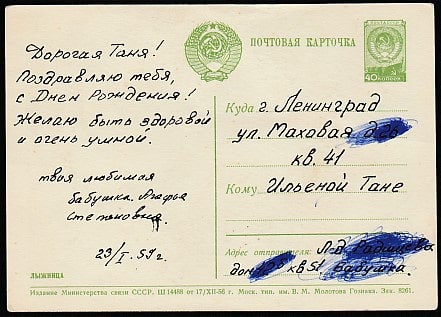 Дорогая Таня!
Поздравляю тебя,
с Днем Рождения!
Желаю быть здоровой
и очень умной.
твоя любимая
бабушка. Агафья
Степановна.
23/I. 59г.
ЛЫЖНИЦА
ПОЧТОВАЯ КАРТОЧКА
40 КОПЕЕК
Куда г. Ленинград
ул. Маховая д.26
кв. 41
Кому Ильеной Тане
Адрес отправителя: Л-д Радищева
дом кв 51 Бабушка.
Издание Министерства связи СССР. Ш 14488 от 17/XII-56 г. Моск. тип. им. В. М. Молотова Гознака. Зак. 8261.